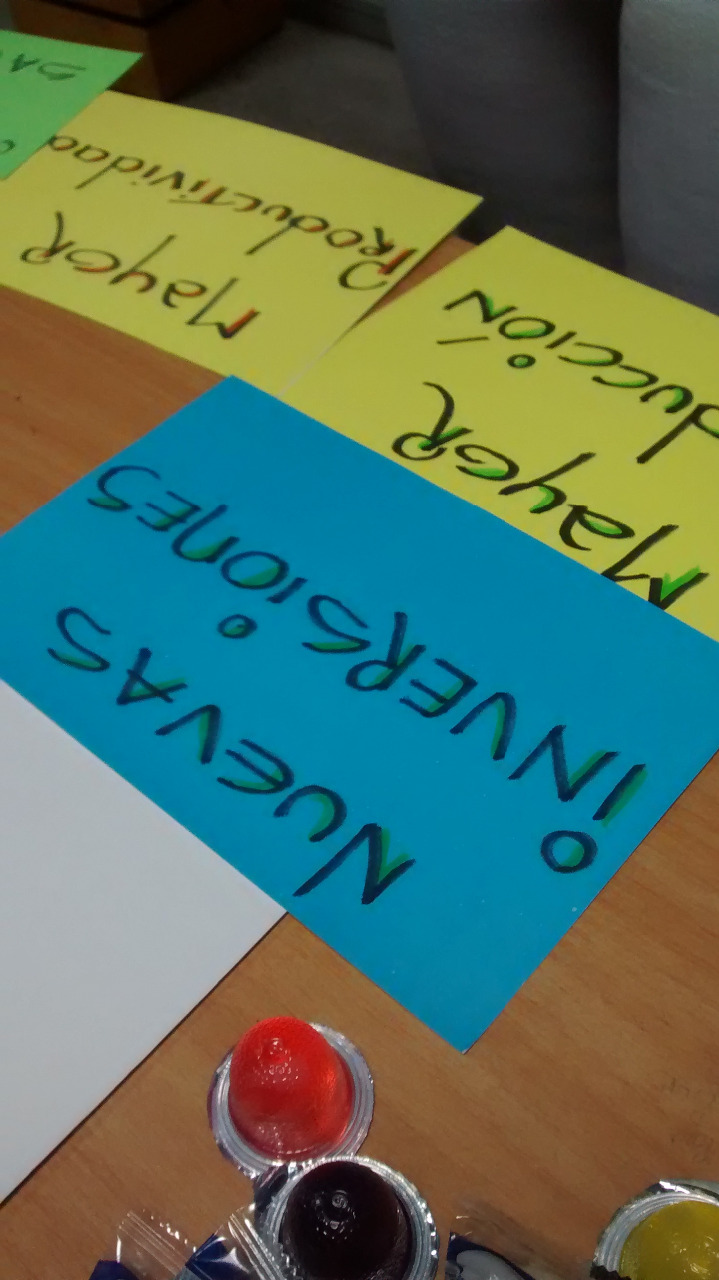 NUEVAS
iNVERSiONES
MAYOR
DUCCIÓN
MAYOR
PRODUCTIVIDAD